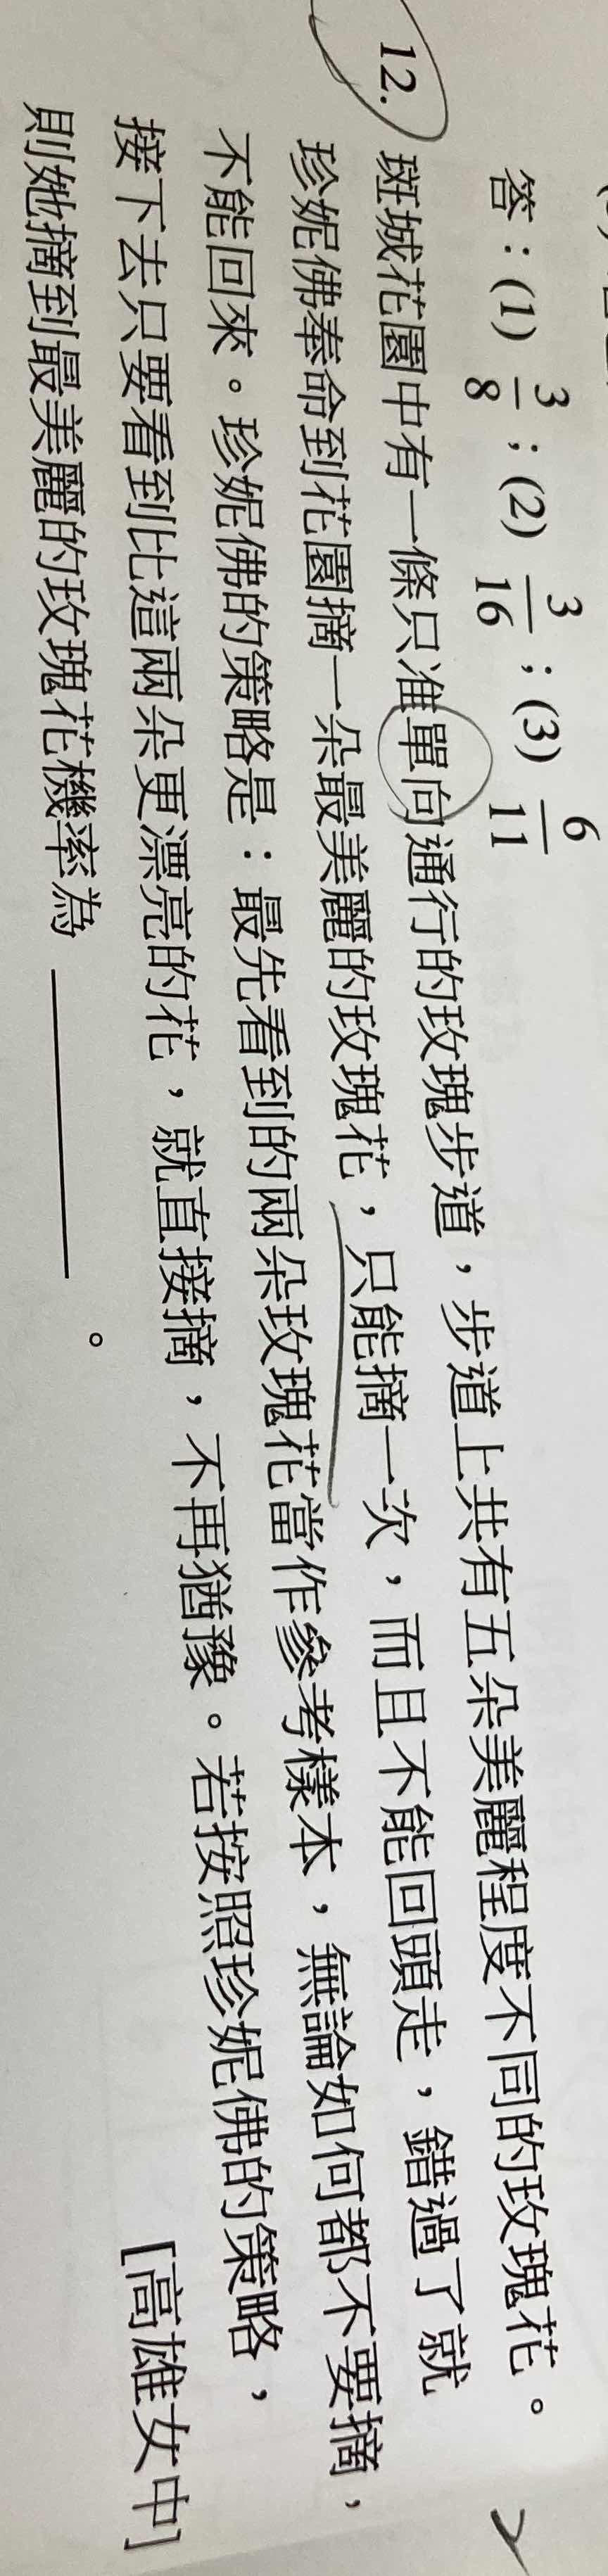 答：(1) 3/8；(2) 3/16；(3) 6/11
12. 斑城花園中有一條只准單向通行的玫瑰步道，步道上共有五朵美麗程度不同的玫瑰花。
珍妮佛奉命到花園摘一朵最美麗的玫瑰花，只能摘一次，而且不能回頭走，錯過了就
不能回來。珍妮佛的策略是：最先看到的兩朵玫瑰花當作參考樣本，無論如何都不要摘，
接下去只要看到比這兩朵更漂亮的花，就直接摘，不再猶豫。若按照珍妮佛的策略，
則她摘到最美麗的玫瑰花機率為＿＿＿＿。
[高雄女中]